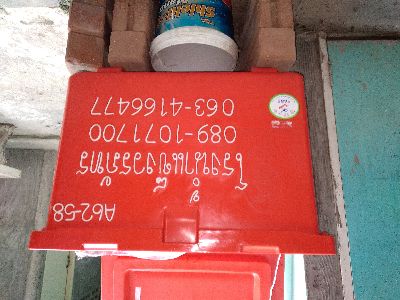 A62-58
โรงน้ำแข็งวรภัทร
089-1071700
063-4166477